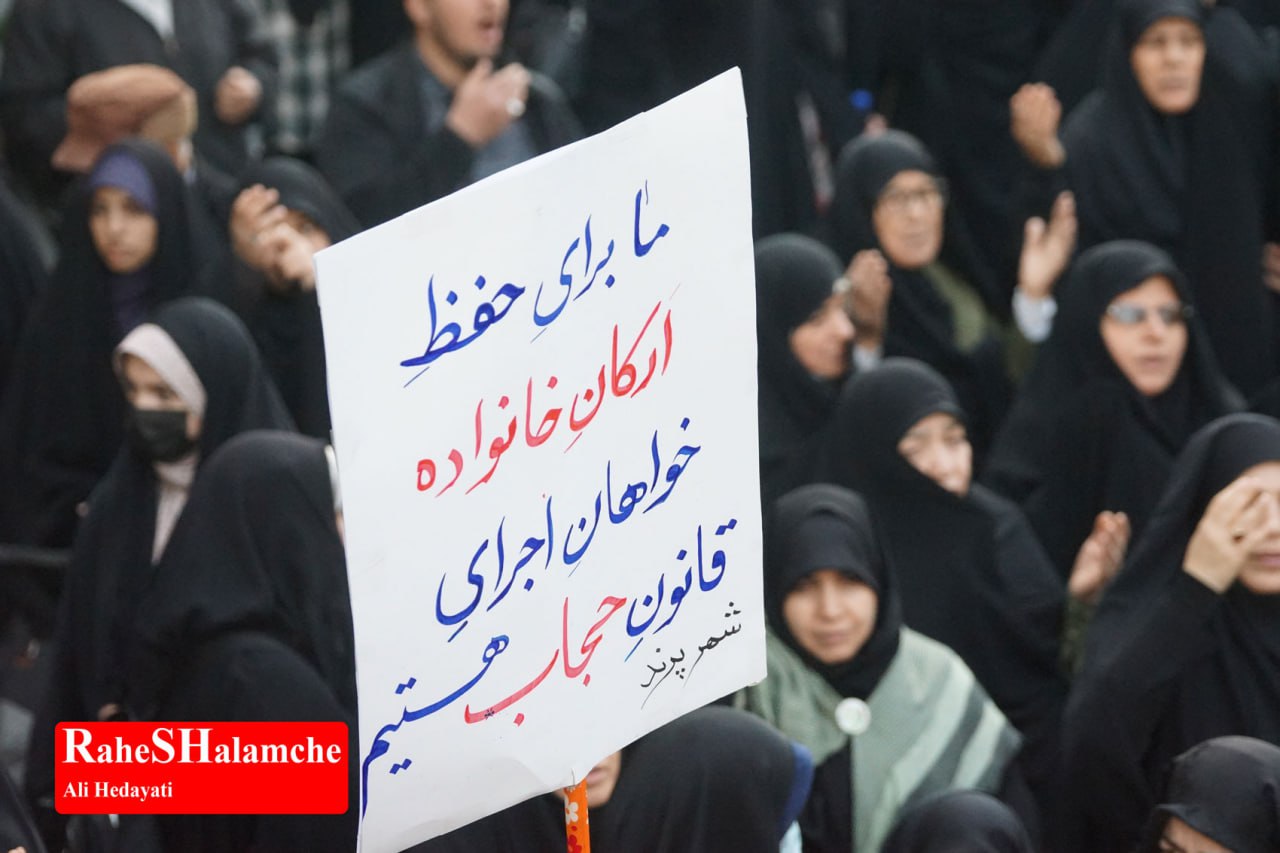 ما برایِ حفظِ
ارکانِ خانواده
خواهانِ اجرایِ
قانونِ حجاب هستیم
شهر پرند
RaheSHalamche
Ali Hedayati